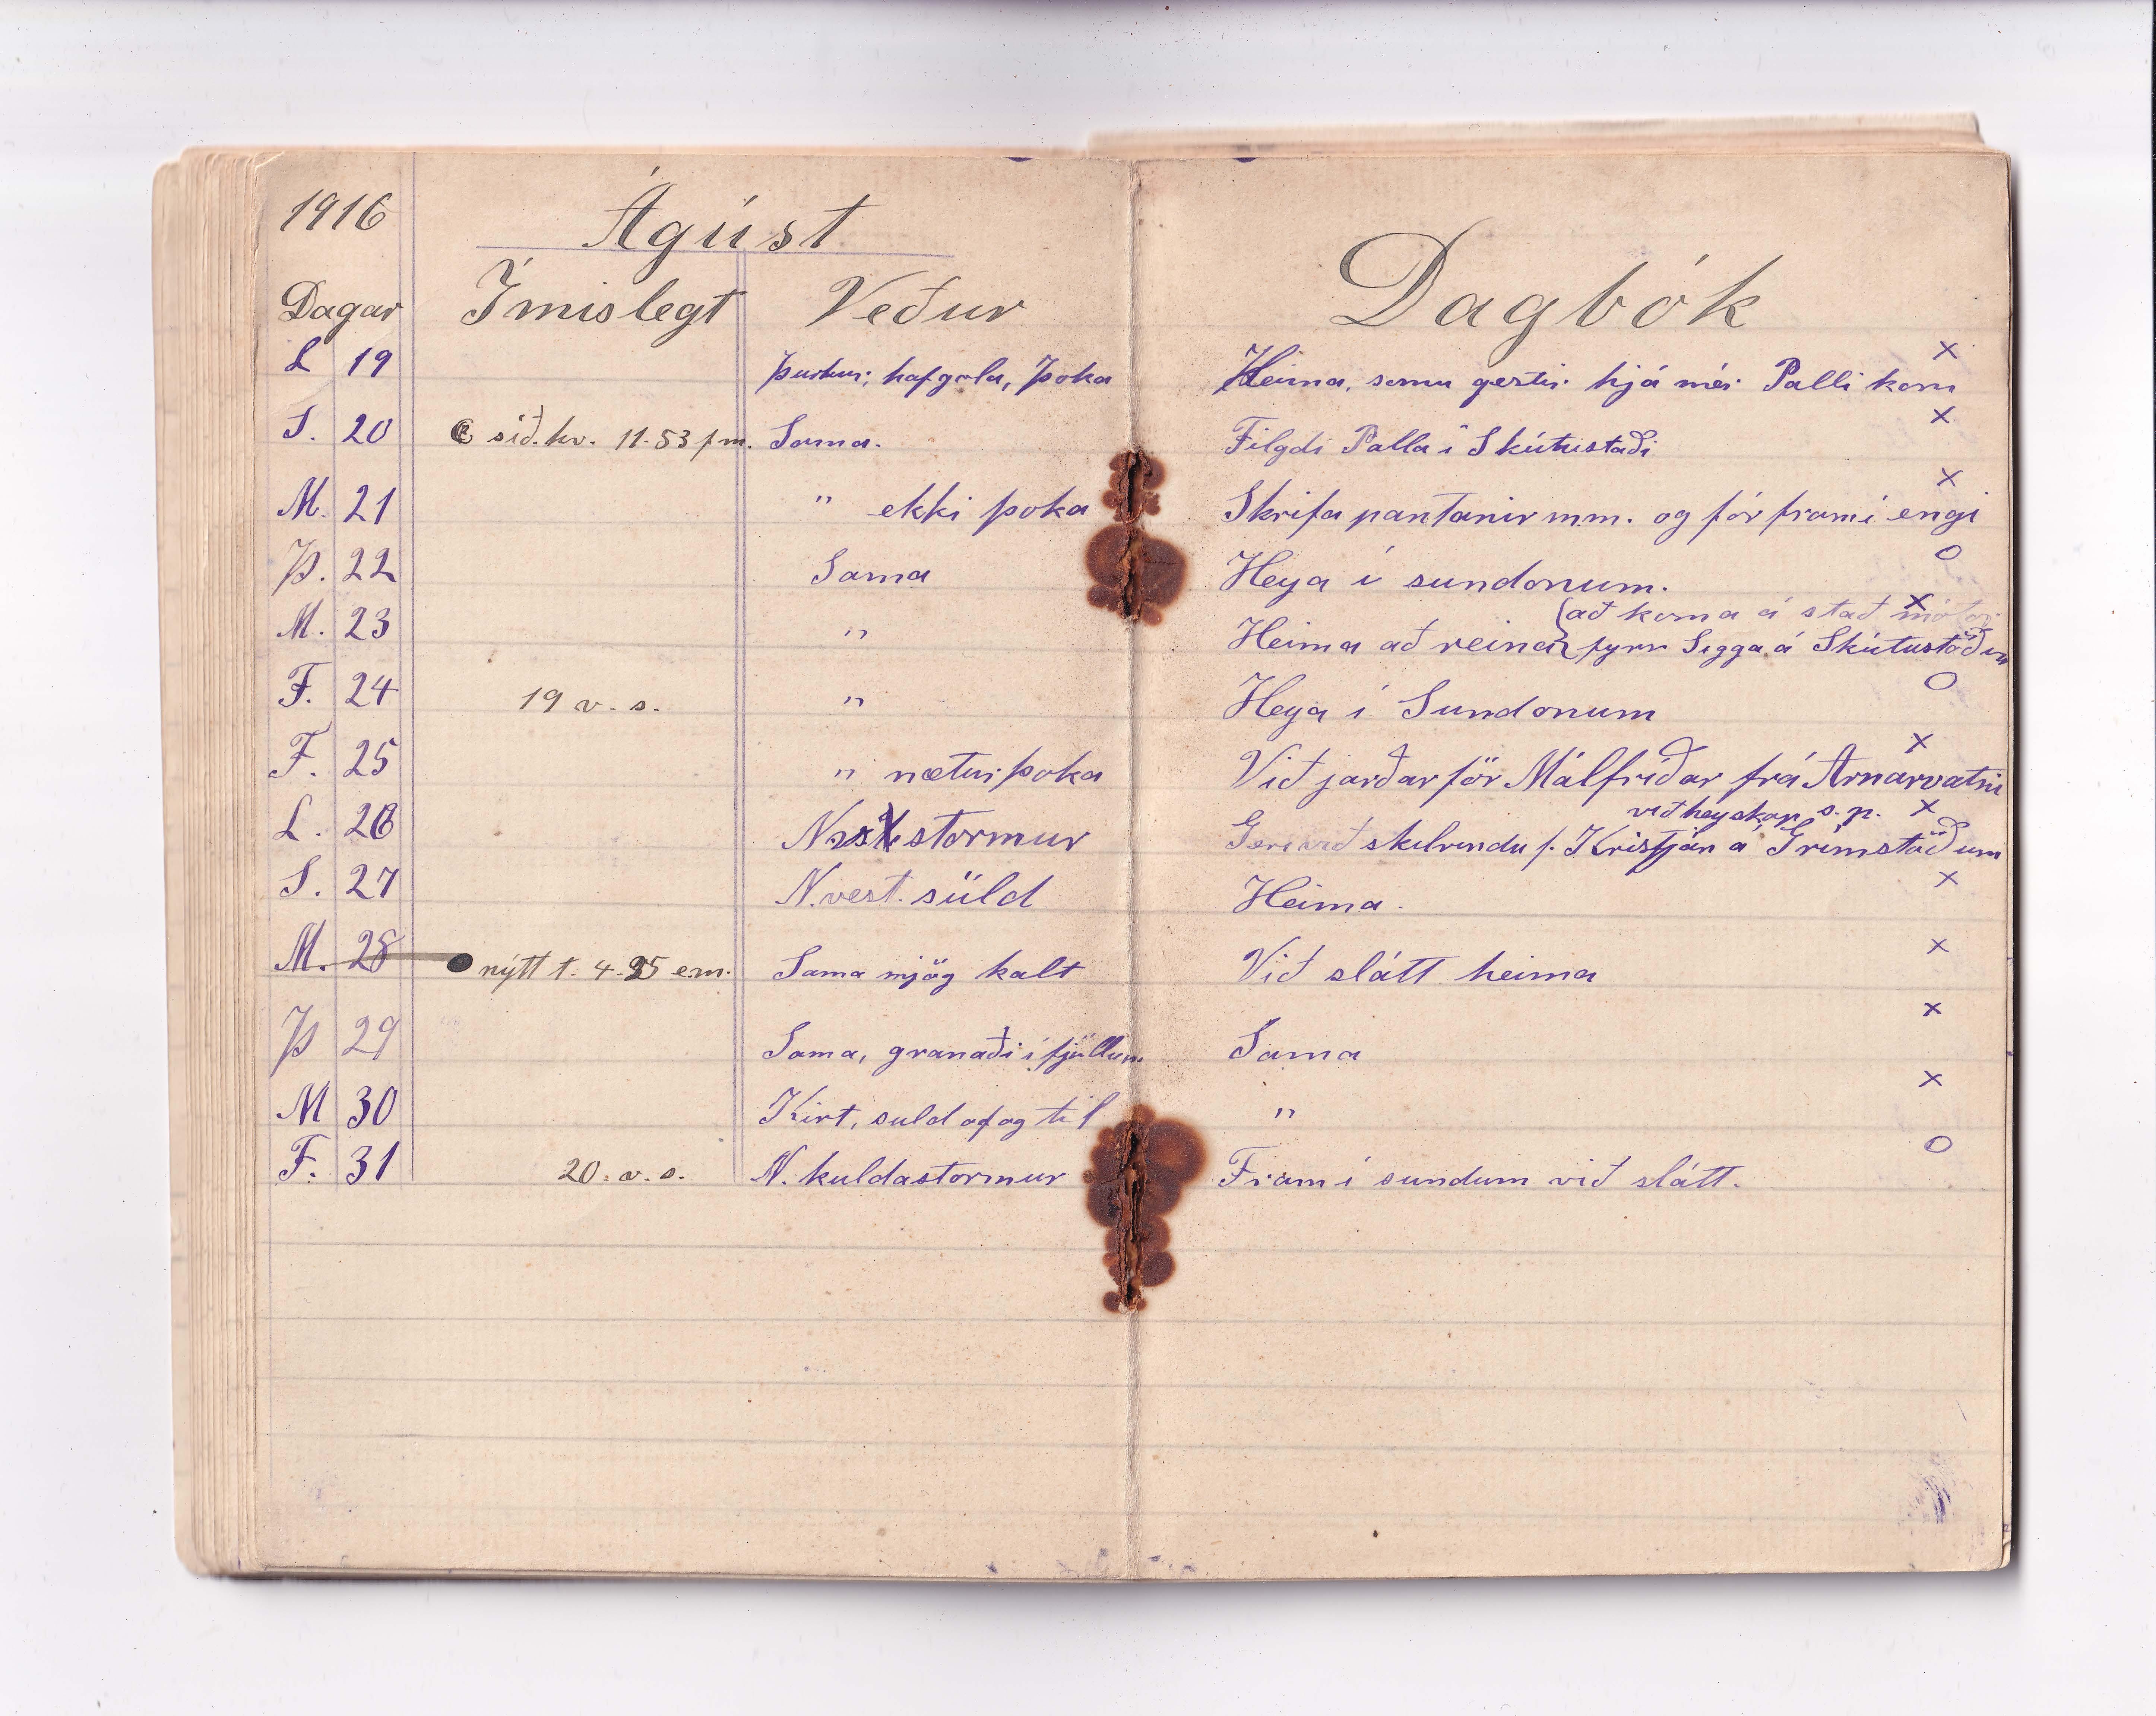 1916 Ágúst
Dagar Ímislegt Veður Dagbók
L 19 Þurkur, hafgola, þoka Heima, somu gestir hjá mér Palli kom x
S. 20 síð. kv. 11.53 f.m. Sama. Filgdi Palla í Skútustaði x
M. 21 " ekki þoka Skrifa pantanir m.m. og fór fram í engi x
Þ. 22 Sama Heya í sundonum. o
(að koma á stað x
M. 23 " Heima að reina fyrir Sigga á Skútustöðum
F. 24 19 v. s. " Heya í Sundonum o
F. 25 " nætur þoka Við jarðarför Málfríðar frá Arnarvatni x
við heyskap s. p. x
L. 26 stormur Geri við skilvindu f. Kristján á Grímstöðum
S. 27 N. vest. súld Heima. x
M. 28 nýtt t. 4.25 e.m. Sama mjög kalt Við slátt heima x
Þ 29 Sama, granaði í fjöllum Sama x
M 30 Kirt, suld af og til " x
F. 31 20. v. s. N. kuldastormur Fram í sundum við slátt. o